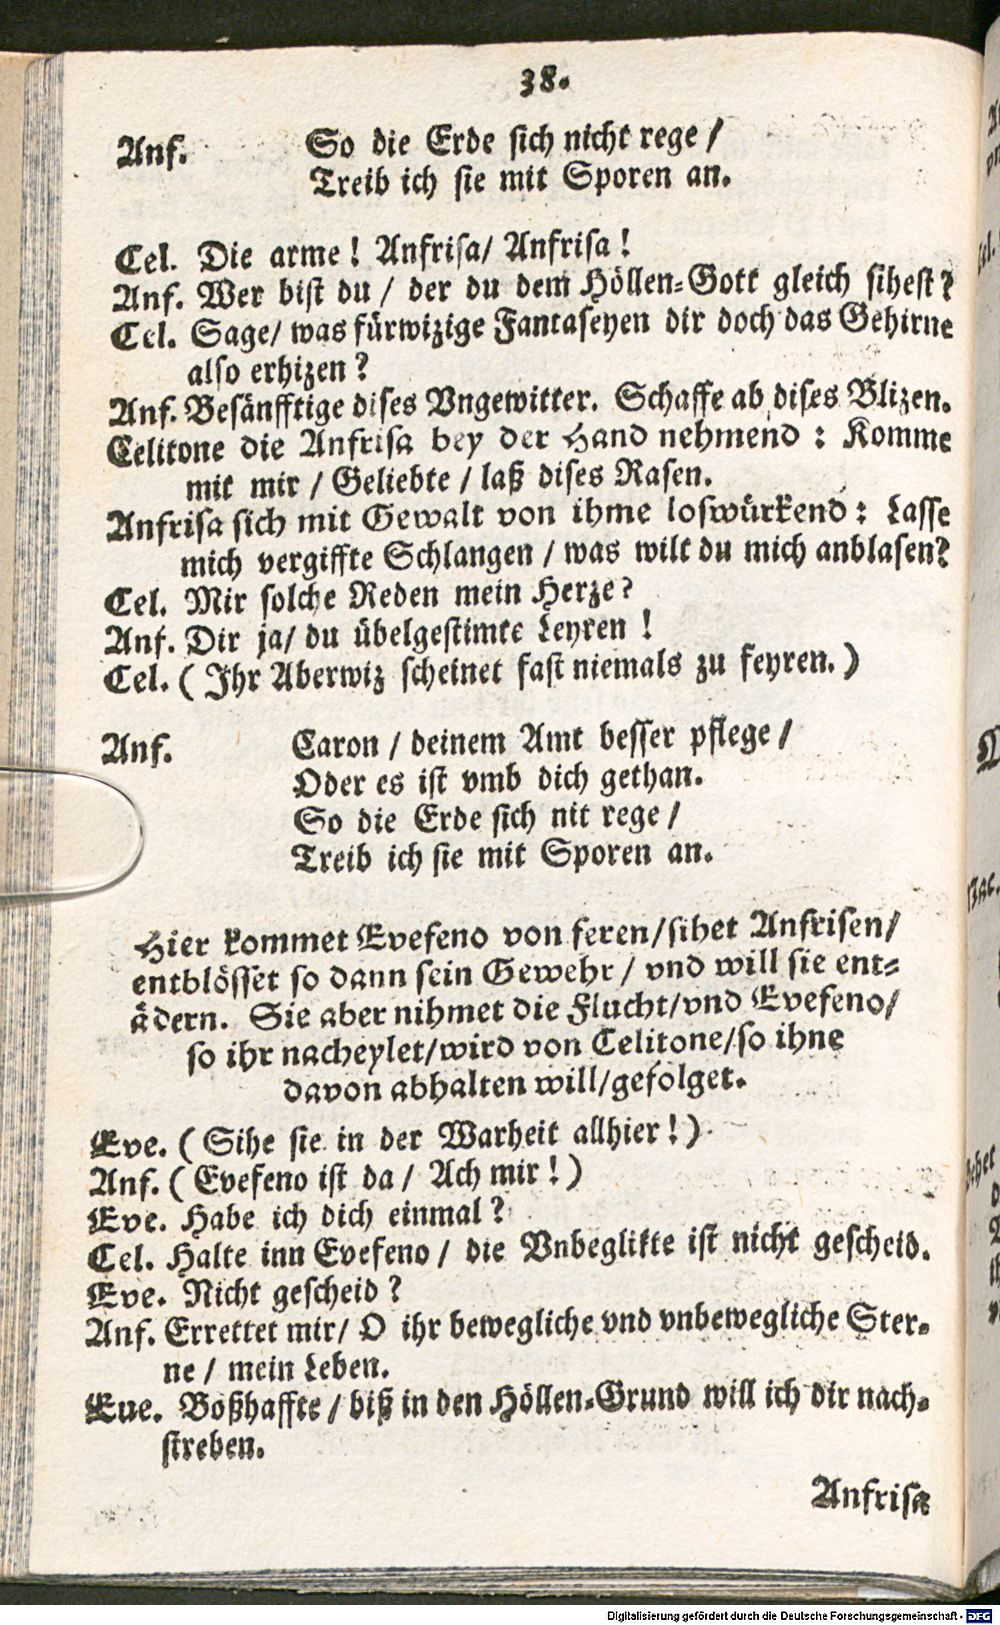 38.
Anf. So die Erde sich nicht rege /
Treib ich sie mit Sporen an.
Cel. Die arme ! Anfrisa/ Anfrisa !
Anf. Wer bist du / der du dem Höllen-Gott gleich sihest ?
Cel. Sage/ was fürwizige Fantaseyen dir doch das Gehirne
also erhizen ?
Anf. Besänfftige dises Vngewitter. Schaffe ab dises Blizen.
Celitone die Anfrisa bey der Hand nehmend : Komme
mit mir / Geliebte / laß dises Rasen.
Anfrisa sich mit Gewalt von ihme loswürkend : Lasse
mich vergiffte Schlangen / was wilt du mich anblasen?
Cel. Mir solche Reden mein Herze ?
Anf. Dir ja/ du übelgestimte Leyren !
Cel. ( Ihr Aberwiz scheinet fast niemals zu feyren. )
Anf. Caron / deinem Amt besser pflege /
Oder es ist vmb dich gethan.
So die Erde sich nit rege /
Treib ich sie mit Sporen an.
Hier kommet Evefeno von feren/sihet Anfrisen/
entblösset so dann sein Gewehr / vnd will sie ent-
ädern. Sie aber nihmet die Flucht/vnd Evefeno/
so ihr nacheylet/wird von Celitone/so ihne
davon abhalten will/gefolget.
Eve. ( Sihe sie in der Warheit allhier ! )
Anf. ( Evefeno ist da / Ach mir ! )
Eve. Habe ich dich einmal ?
Cel. Halte inn Evefeno / die Vnbeglikte ist nicht gescheid.
Eve. Nicht gescheid ?
Anf. Errettet mir/ O ihr bewegliche vnd vnbewegliche Ster-
ne / mein Leben.
Eue. Boßhaffte / biß in den Höllen-Grund will ich dir nach-
streben.
Anfrisa
Digitalisierung gefördert durch die Deutsche Forschungsgemeinschaft - DFG